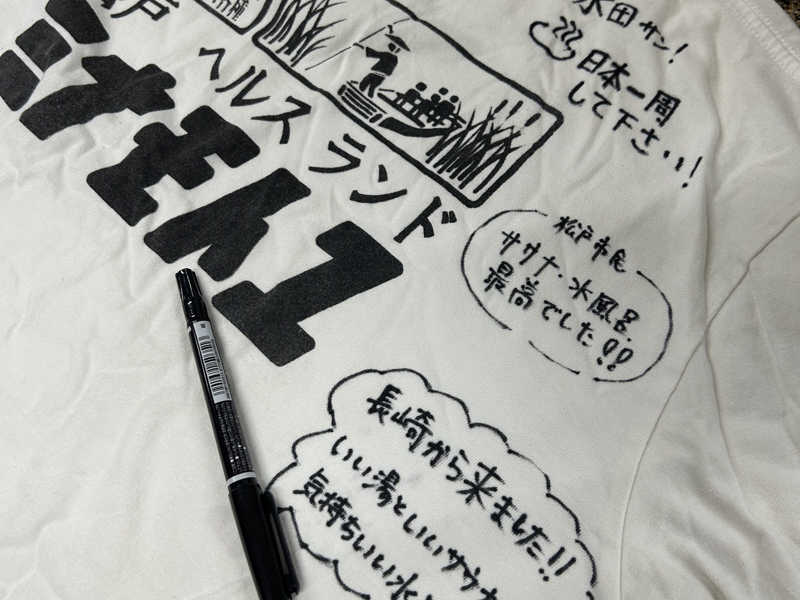 戸
ヘルス ランド
ユーカリ
水田サン!
日本一周
して下さい!
松戸市民
サウナ・水風呂
最高でした!!
長崎から来ました!!
いい湯といいサウナ
気持ちいい水